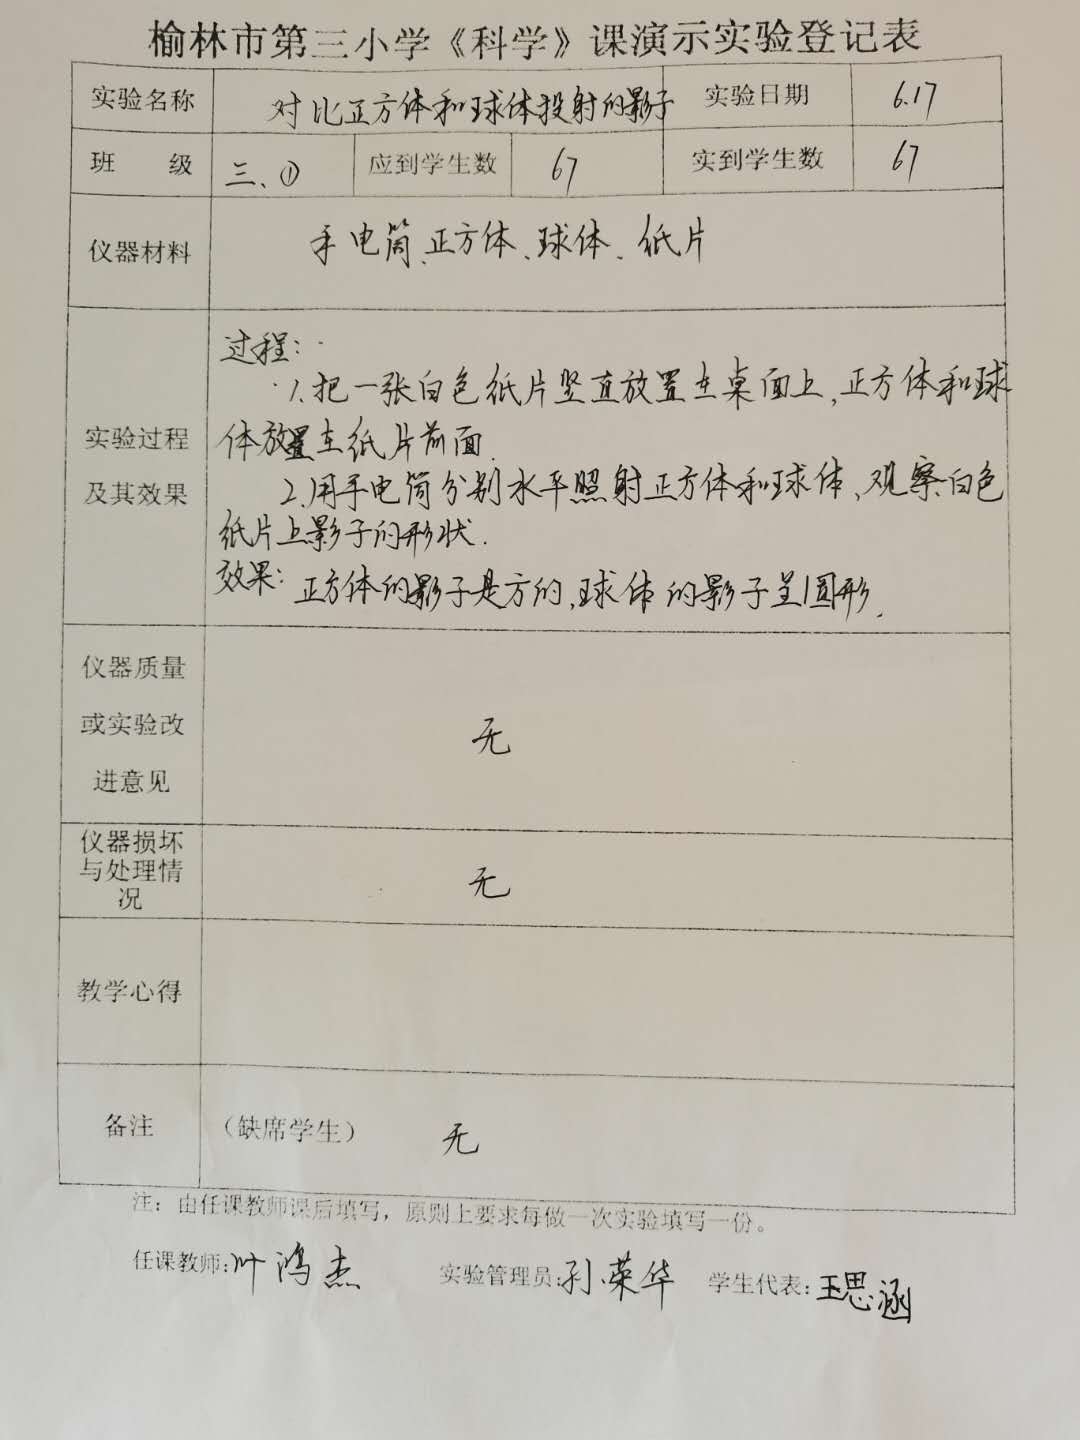 榆林市第三小学《科学》课演示实验登记表
实验名称 对比正方体和球体投射的影子 实验日期 6.17
班 级 三、① 应到学生数 67 实到学生数 67
仪器材料 手电筒、正方体、球体、纸片
过程：
1.把一张白色纸片竖直放置在桌面上,正方体和球
体放置在纸片前面.
实验过程
及其效果
2.用手电筒分别水平照射正方体和球体,观察白色
纸片上影子的形状.
效果：正方体的影子是方的,球体的影子呈圆形.
仪器质量
或实验改
进意见
无
仪器损坏
与处理情
况
无
教学心得
备注 （缺席学生） 无
注：由任课教师课后填写，原则上要求每做一次实验填写一份。
任课教师:叶鸿杰 实验管理员:孙荣华 学生代表:王思涵